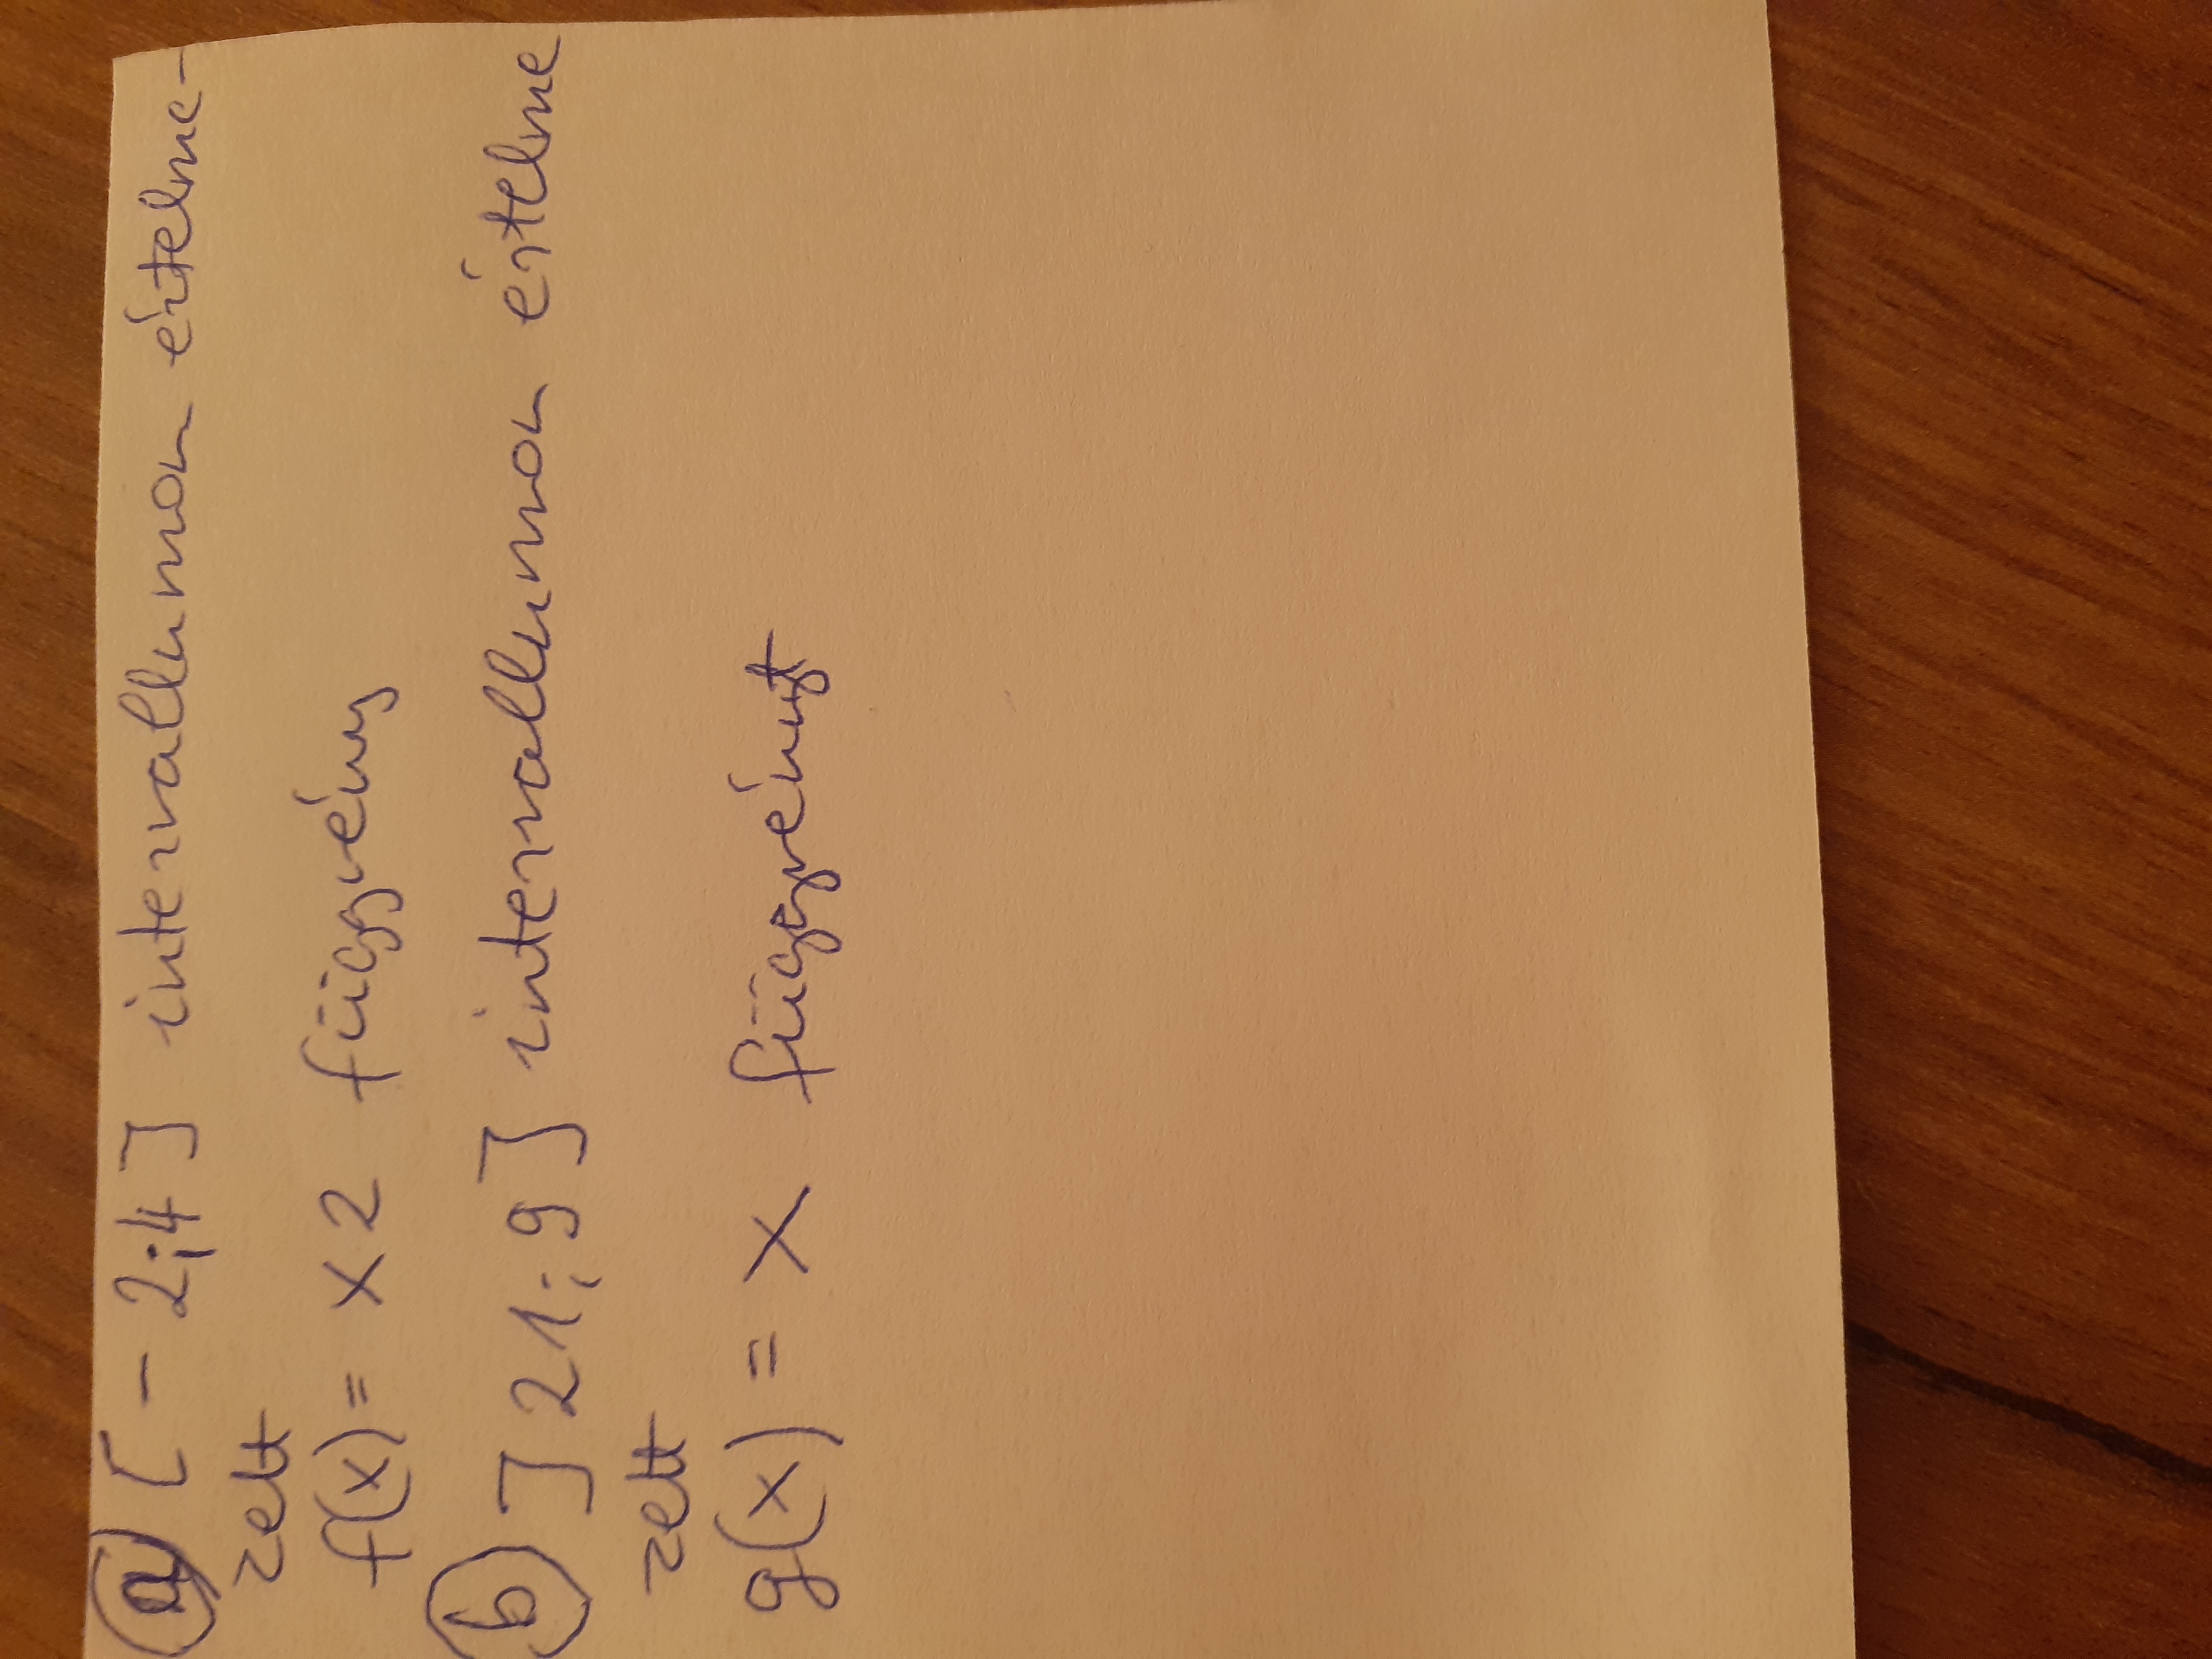 a) [-2;4] intervallumon értelme-
zett
f(x) = x2 függvény
b) ]21;9] intervallumon értelme
zett
g(x) = x függvényt